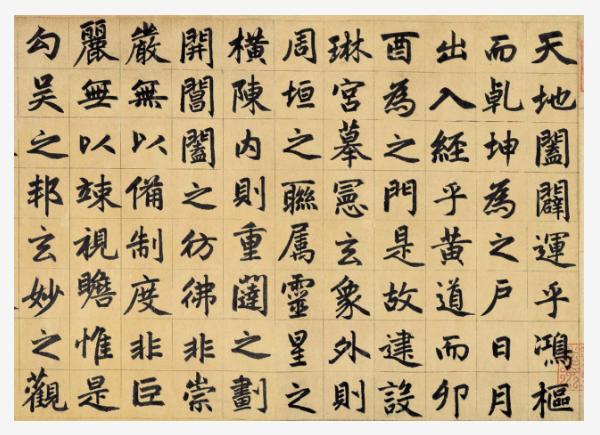 天地闔闢運乎鴻樞
而乹坤為之戶日月
出入經乎黃道而卯
酉為之門是故建設
琳宮摹憲玄象外則
周垣之聯屬靈星之
橫陳内則重闥之劃
開閶闔之彷彿非崇
嚴無以備制度非巨
麗無以竦視瞻惟是
勾吳之邦玄妙之觀